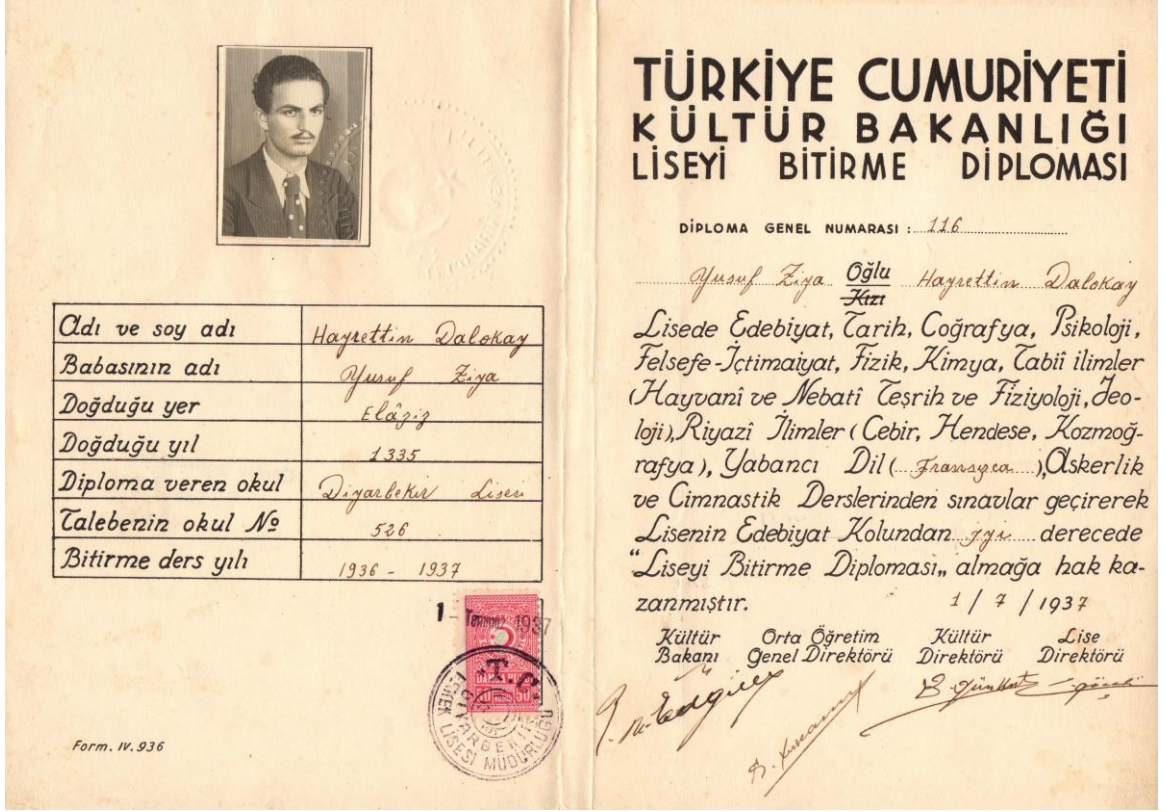 Adı ve soy adı Hayrettin Dalokay
Babasının adı Yusuf Ziya
Doğduğu yer Elâziz
Doğduğu yıl 1335
Diploma veren okul Diyarbekir Lisesi
Talebenin okul No 526
Bitirme ders yılı 1936 - 1937
1 - Temmuz 1937
T.C.
50 50
DİYARBEKİR
ERKEK LİSESİ MÜDÜRLÜĞÜ
Form. IV. 936
TÜRKİYE CUMURİYETİ
KÜLTÜR BAKANLIĞI
LİSEYİ BİTİRME DİPLOMASI
DİPLOMA GENEL NUMARASI : 116
Yusuf Ziya Oğlu Hayrettin Dalokay
Kızı
Lisede Edebiyat, Tarih, Coğrafya, Psikoloji,
Felsefe-İçtimaiyat, Fizik, Kimya, Tabiî ilimler
(Hayvanî ve Nebatî Teşrih ve Fiziyoloji, Jeo-
loji), Riyazî İlimler (Cebir, Hendese, Kozmoğ-
rafya), Yabancı Dil ( Fransızca ), Askerlik
ve Cimnastik Derslerinden sınavlar geçirerek
Lisenin Edebiyat Kolundan iyi derecede
"Liseyi Bitirme Diploması„ almağa hak ka-
zanmıştır. 1 / 7 / 1937
Kültür Orta Öğretim Kültür Lise
Bakanı Genel Direktörü Direktörü Direktörü